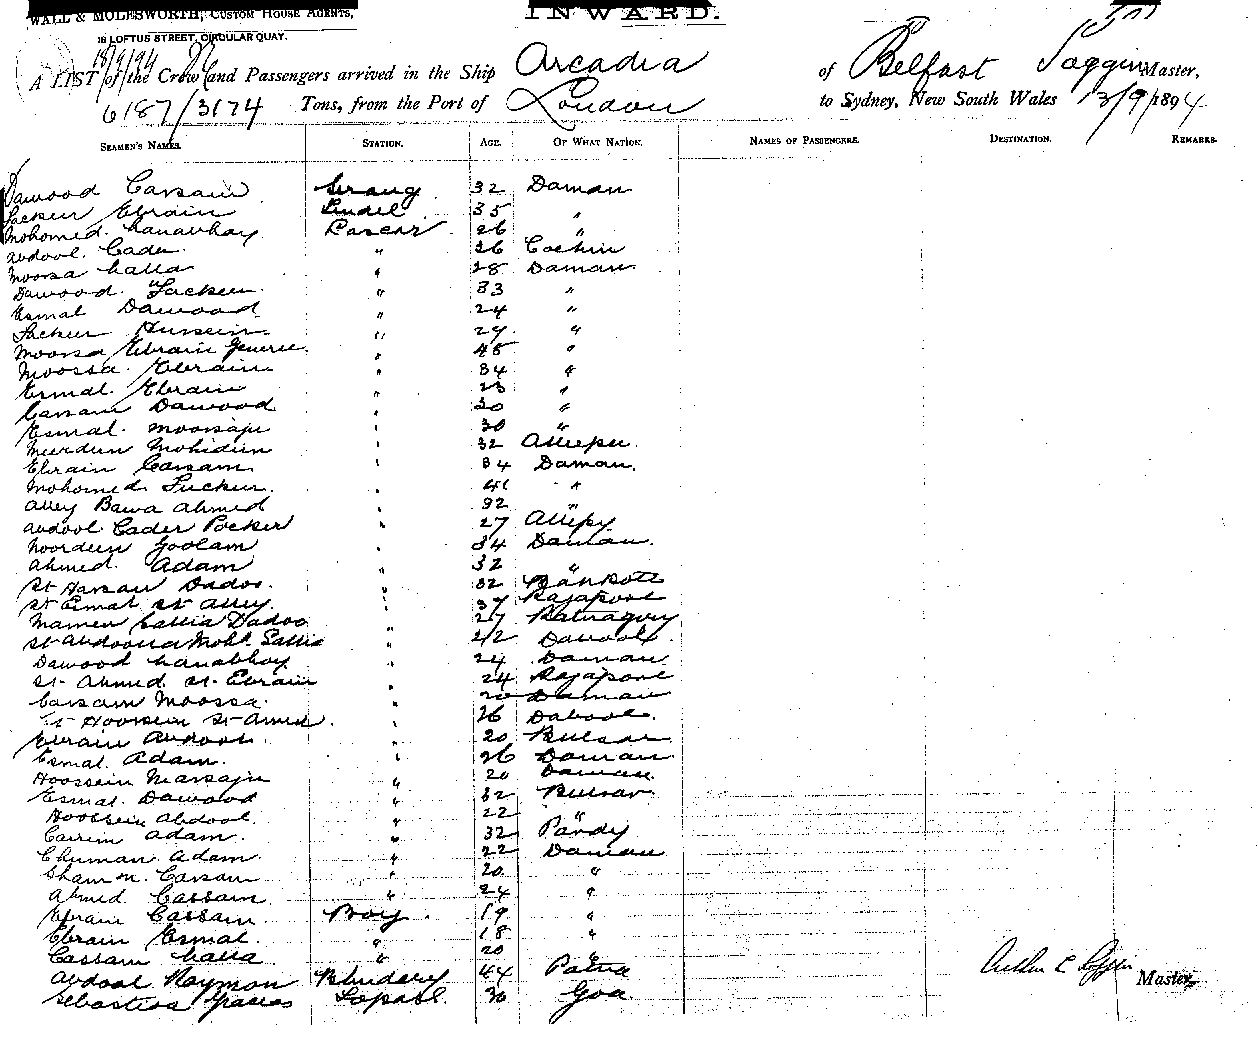 WALL & MOLESWORTH, CUSTOM HOUSE AGENTS,
INWARD.
16 LOFTUS STREET, CIRCULAR QUAY.
18/9/94
A LIST of the Crew and Passengers arrived in the Ship Arcadia of Belfast Master,
6187/3174 Tons, from the Port of London to Sydney, New South Wales 13/9/1894
SEAMEN'S NAMES. STATION. AGE. OF WHAT NATION. NAMES OF PASSENGERS. DESTINATION. REMARKS.
Dawood Cassam Serang 32 Daman
Jackur Ebrain 35 "
Mohomed Lascar 26 "
Abdool Cader " 26 Cochin
Moosa " 28 Daman
Dawood Jackur " 33 "
Esmal Dawood " 24 "
Jackur Hussein " 29 "
Moossa Ebrain " 45 "
Moossa Ebrain " 34 "
Esmal Ebrain " 23 "
Cassam Dawood " 30 "
Esmal Moosaju " 30 "
Meerdun Mohidun " 32
Ebrain Cassam " 34 Daman
Mohomed Juckur " 41 "
Alley Bawa Ahmed " 32 "
Abdool Cader Pocker " 27 Allepy
Noordeen Goolam " 34 Daman
Ahmed Adam " 32 "
St Hassan Dadoo " 32
St Esmal St Alley " 37 Rajapore
Dadoo " 27
Mohd. " 22
Dawood " 24 Daman
St Ahmed St Ebrain " 24 Rajapore
Cassam Moossa " 20 Daman
St Hoossein St Amed " 26 Dabool
Ebrain Abdool " 20 Bulsar
Esmal Adam " 26 Daman
Hoossein " 20 Daman
Esmal Dawood " 32 Bulsar
Hoossein Abdool " 22 "
Carrim Adam " 32 Pardy
Chuman Adam " 22 Daman
Cassam " 20 "
Ahmed Cassam " 24 "
Ebrain Cassam Boy 19 "
Ebrain Esmal " 18 "
Cassam " 20 "
Abdool Raymon Bhundary 44 Patna
Sebastiao 30 Goa
Master.